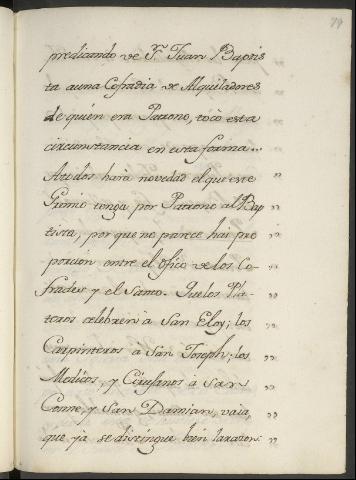 79
predicando de S.n Juan Baptis
ta a una Cofradia de Alquiladores
de quien era Patrono, tocò esta
circunstancia en esta forma...
A todos harà novedad el que este
Gremio tenga por Patrono al Bap
tista, por que no parece hai pro
porcion entre el Oficio de los Co-
frades y el Santo. Que los Pla-
teros celebren à San Eloy; los
Carpinteros à San Joseph; los
Medicos, y Cirujanos à San
Cosme, y San Damian, vaia,
que yà se distingue bien la razon: